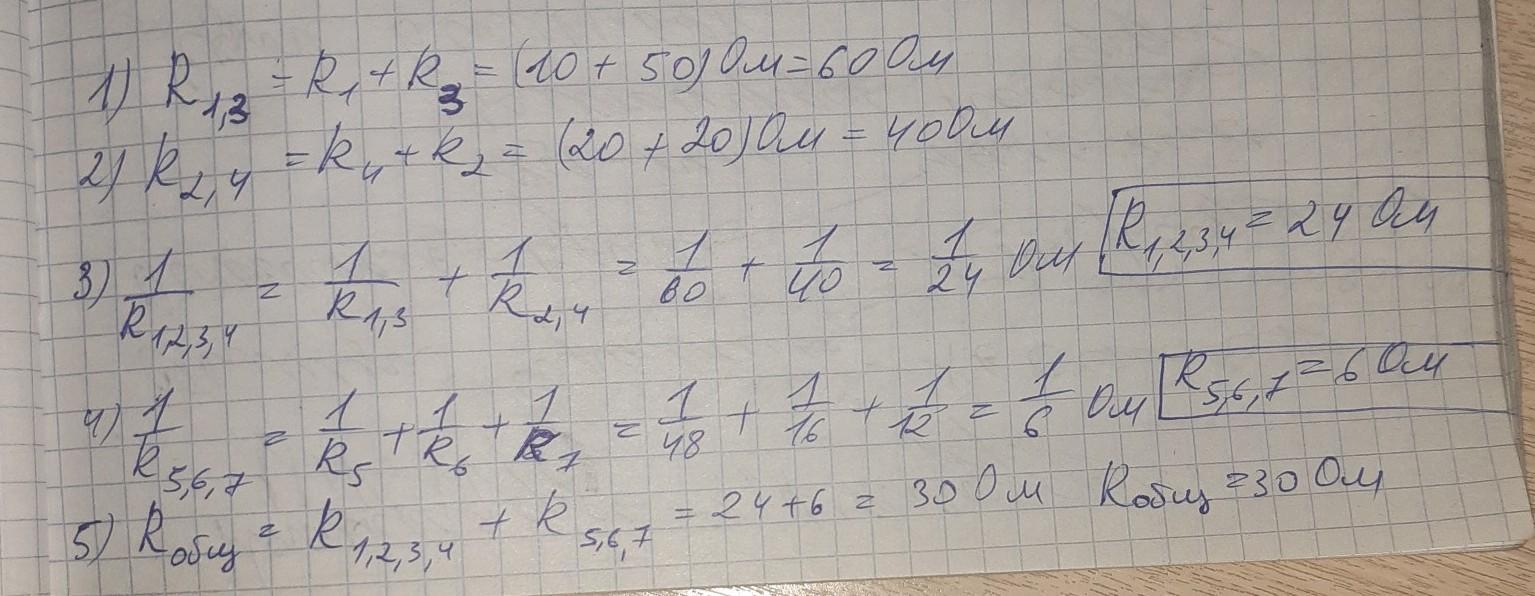 1) R1,3 = R1 + R3 = (10 + 50) Ом = 60 Ом
2) R2,4 = R4 + R2 = (20 + 20) Ом = 40 Ом
3) 1/R1,2,3,4 = 1/R1,3 + 1/R2,4 = 1/60 + 1/40 = 1/24 Ом R1,2,3,4 = 24 Ом
4) 1/R5,6,7 = 1/R5 + 1/R6 + 1/R7 = 1/48 + 1/16 + 1/12 = 1/6 Ом R5,6,7 = 6 Ом
5) Rобщ = R1,2,3,4 + R5,6,7 = 24 + 6 = 30 Ом Rобщ = 30 Ом